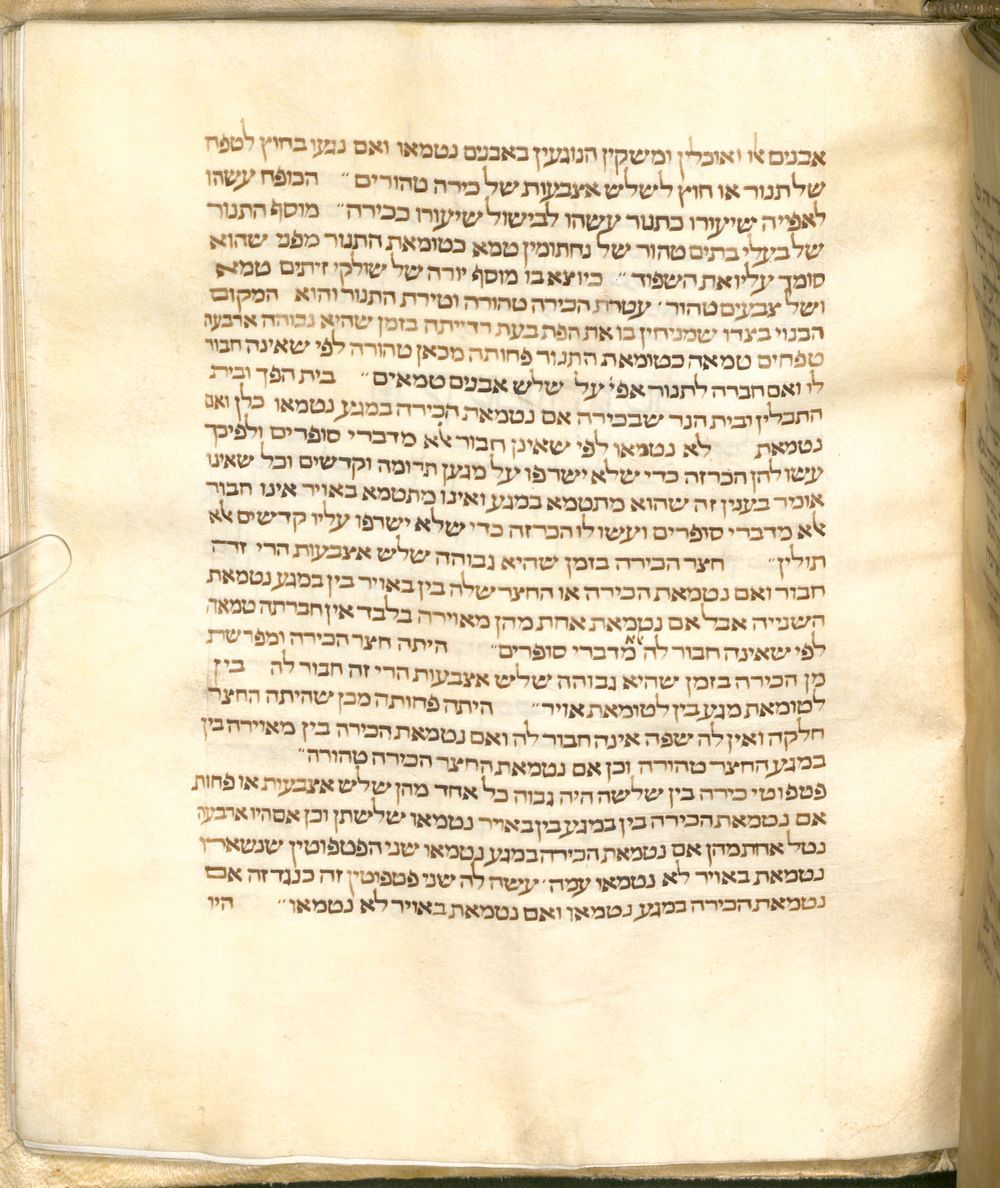 אבנים או ואוכלין ומשקין הנוגעין באבנים נטמאו ואם נגעו בחוץ לטפח
של תנור או חוץ לשלש אצבעות של כירה טהורים״ הכופח עשהו
לאפייה שיעורו כתנור עשהו לבישול שיעורו ככירה״ מוסף התנור
של בעלי בתים טהור של נחתומין טמא כטומאת התנור מפני שהוא
סומך עליו את השפוד״ כיוצא בו מוסף יורה של שולקי זיתים טמא
ושל צבעים טהור׳ עטרת הכירה טהורה וטירת התנור והוא המקום
הבנוי בצדו שמניחין בו את הפת בעת רדייתה בזמן שהיא גבוהה ארבעה
טפחים טמאה כטומאת התנור פחותה מכאן טהורה לפי שאינה חבור
לו ואם חברה לתנור אפי׳ על שלש אבנים טמאים״ בית הפך ובית
התבלין ובית הנר שבכירה אם נטמאת הכירה במגע נטמאו כלן ואם
נטמאת לא נטמאו לפי שאינן חבור אלא מדברי סופרים ולפיכך
עשו להן הכרזה כדי שלא ישרפו על מגען תרומה וקדשים וכל שאינו
אומר בענין זה שהוא מתטמא במגע ואינו מתטמא באויר אינו חבור
אלא מדברי סופרים ועשו לו הכרזה כדי שלא ישרפו עליו קדשים אלא
תולין״ חצר הכירה בזמן שהיא גבוהה שלש אצבעות הרי זה
חבור ואם נטמאת הכירה או החצר שלה בין באויר בין במגע נטמאת
השנייה אבל אם נטמאת אחת מהן מאוירה בלבד אין חברתה טמאה
לפי שאינה חבור לה אלא מדברי סופרים״ היתה חצר הכירה ומפרשת
מן הכירה בזמן שהיא גבוהה שלש אצבעות הרי זה חבור לה בין
לטומאת מגע בין לטומאת אויר״ היתה פחותה מכן שהיתה החצר
חלקה ואין לה שפה אינה חבור לה ואם נטמאת הכירה בין מאוירה בין
במגע החצר טהורה וכן אם נטמאת החצר הכירה טהורה״
פטפוטי כירה בין שלשה היה גבוה כל אחד מהן שלש אצבעות או פחות
אם נטמאת הכירה בין במגע בין באויר נטמאו שלשתן וכן אם היו ארבעה
נטל אחת מהן אם נטמאת הכירה במגע נטמאו שני הפטפוטין שנשארו
נטמאת באויר לא נטמאו עמה׳ עשה לה שני פטפוטין זה כנגד זה אם
נטמאת הכירה במגע נטמאו ואם נטמאת באויר לא נטמאו״ היו